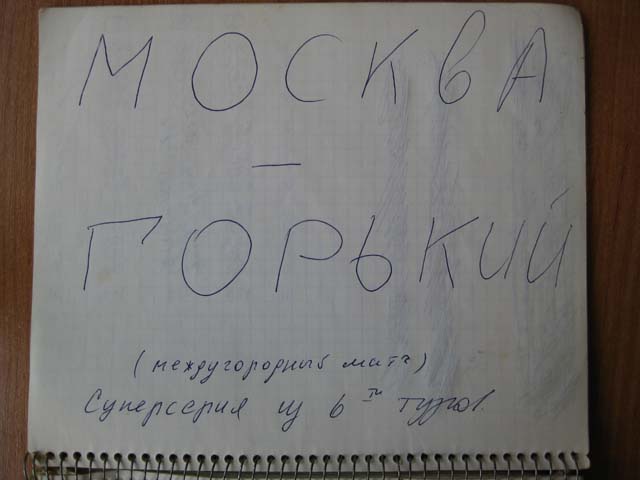 МОСКВА
—
ГОРЬКИЙ
(междугородный матч)
Суперсерия из 6ти туров.